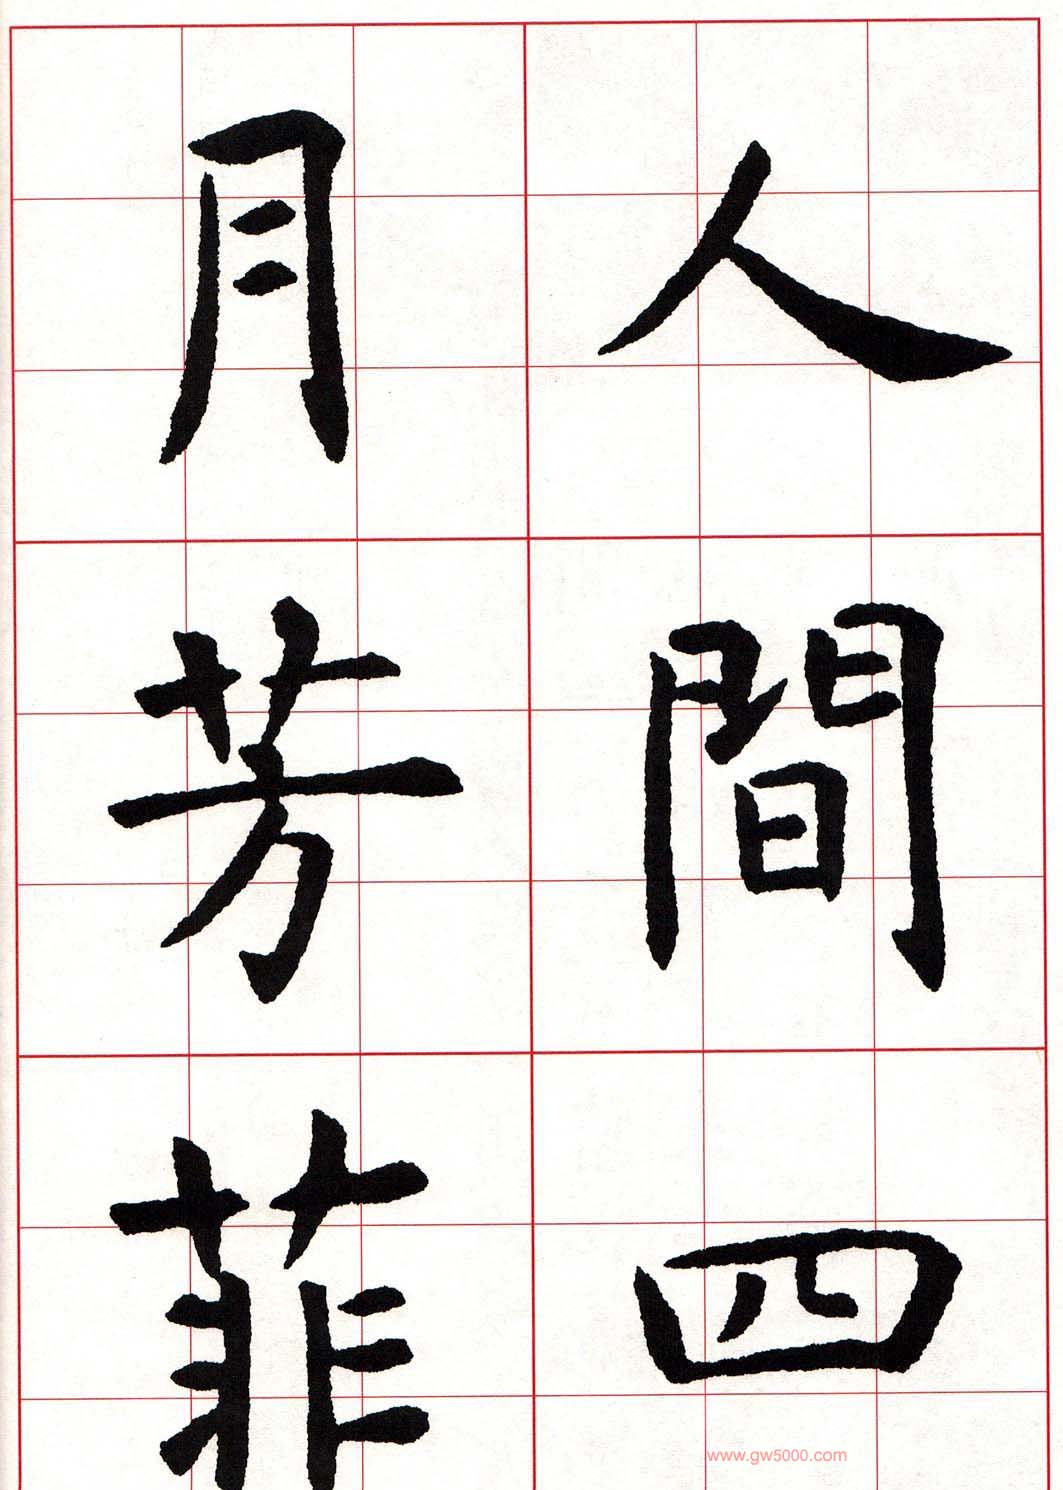 人間四
月芳菲
www.gw5000.com